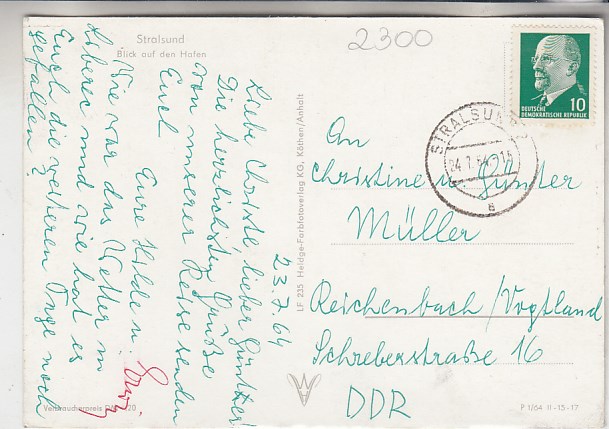 Stralsund
Blick auf den Hafen
2300
DEUTSCHE
DEMOKRATISCHE REPUBLIK
10
STRALSUND
24.7.64
a
23.7.64
Liebe Christe lieber Günther!
Die herzlichsten Grüße
von unserer Reise senden
Euch
Eure Hilde u.
Wie war das Wetter in
Liberec und wie hat es
Euch die weiteren Tage noch
gefallen?
An
Christine u. Günter
Müller
Reichenbach/Vogtland
Schreberstraße 16
DDR
LF 235 Heldge-Farbfotoverlag KG, Köthen/Anhalt
Verbraucherpreis 20
P 1/64 II-15-17